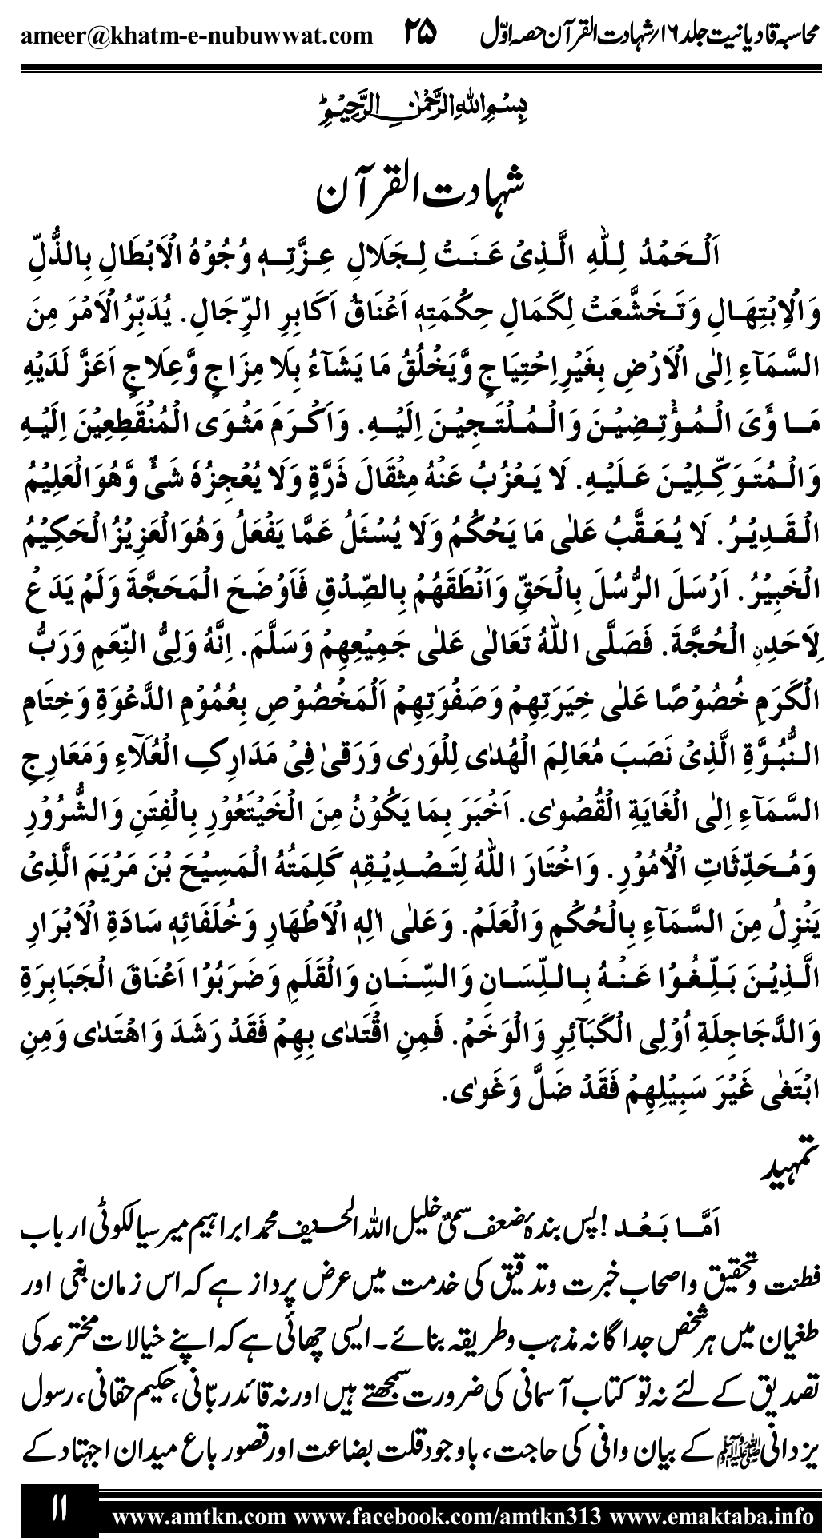 محاسبہ قادیانیت جلد ۱۶/شہادت القرآن حصہ اوّل ۲۵ ameer@khatm-e-nubuwwat.com
بِسْمِ اللّٰهِ الرَّحْمٰنِ الرَّحِيْمِ
شہادت القرآن
اَلْحَمْدُ لِلّٰهِ الَّذِیْ عَنَتْ لِجَلَالِ عِزَّتِهٖ وُجُوْهُ الْاَبْطَالِ بِالذُّلِّ
وَالْاِبْتِهَالِ وَتَخَشَّعَتْ لِكَمَالِ حِكْمَتِهٖ اَعْنَاقُ اَكَابِرِ الرِّجَالِ. یُدَبِّرُ الْاَمْرَ مِنَ
السَّمَآءِ اِلَی الْاَرْضِ بِغَیْرِ اِحْتِیَاجٍ وَّیَخْلُقُ مَا یَشَآءُ بِلَا مِزَاجٍ وَّعِلَاجٍ اَعَزَّ لَدَیْهِ
مَـا ؤَیَ الْـمُـؤْتِـضِیْـنَ وَالْـمُـلْتَـجِیْـنَ اِلَیْـهِ. وَاَكْـرَمَ مَثْوَی الْمُنْقَطِعِیْنَ اِلَیْهِ
وَالْـمُتَـوَكِّـلِیْـنَ عَـلَیْـهِ. لَا یَـعْزُبُ عَنْهُ مِثْقَالَ ذَرَّةٍ وَلَا یُعْجِزُهٗ شَیْءٌ وَّهُوَ الْعَلِیْمُ
الْـقَـدِیْـرُ. لَا یُـعَـقَّبُ عَلٰی مَا یَحْكُمُ وَلَا یُسْئَلُ عَمَّا یَفْعَلُ وَهُوَ الْعَزِیْزُ الْحَكِیْمُ
الْخَبِیْرُ. اَرْسَلَ الرُّسُلَ بِالْحَقِّ وَاَنْطَقَهُمْ بِالصِّدْقِ فَاَوْضَحَ الْمَحَجَّةَ وَلَمْ یَدَعْ
لِاَحَدِنِ الْحُجَّةَ. فَصَلَّی اللّٰهُ تَعَالٰی عَلٰی جَمِیْعِهِمْ وَسَلَّمَ. اِنَّهٗ وَلِیُّ النِّعَمِ وَرَبُّ
الْكَرَمِ خُصُوْصًا عَلٰی خِیَرَتِهِمْ وَصَفْوَتِهِمْ اَلْمَخْصُوْصِ بِعُمُوْمِ الدَّعْوَةِ وَخِتَامِ
النُّبُوَّةِ الَّذِیْ نَصَبَ مُعَالِمَ الْهُدٰی لِلْوَرٰی وَرَقیٰ فِیْ مَدَارِكِ الْعُلَاءِ وَمَعَارِجِ
السَّمَآءِ اِلَی الْغَایَةِ الْقُصْوٰی. اَخْبَرَ بِمَا یَكُوْنُ مِنَ الْخَیْتَعُوْرِ بِالْفِتَنِ وَالشُّرُوْرِ
وَمُحَدِّثَاتِ الْاُمُوْرِ. وَاخْتَارَ اللّٰهُ لِتَصْدِیْقِهٖ كَلِمَتُهُ الْمَسِیْحَ بْنَ مَرْیَمَ الَّذِیْ
یَنْزِلُ مِنَ السَّمَآءِ بِالْحُكْمِ وَالْعَلَمْ. وَعَلٰی اٰلِهِ الْاَطْهَارِ وَخُلَفَائِهٖ سَادَةِ الْاَبْرَارِ
الَّذِیْنَ بَلِّغُوْا عَنْهُ بِاللِّسَانِ وَالسِّنَانِ وَالْقَلَمِ وَضَرَبُوْا اَعْنَاقَ الْجَبَابِرَةِ
وَالدَّجَاجِلَةِ اُوْلِی الْكَبَآئِرِ وَالْوَخَمْ. فَمِنِ اقْتَدٰی بِهِمْ فَقَدْ رَشَدَ وَاهْتَدٰی وَمِنِ
ابْتَغٰی غَیْرَ سَبِیْلِهِمْ فَقَدْ ضَلَّ وَغَوٰی.
تمہید
اَمَّـا بَـعْـد! پس بندہٗ ضعف سمیٌ خلیل اللہ الحسنیف محمد ابراہیم میر سیالکوٹی ارباب
فطنت و تحقیق واصحاب خبرت و تدقیق کی خدمت میں عرض پرداز ہے کہ اس زمان بغی اور
طغیان میں ہر شخص جداگانہ مذہب و طریقہ بنائے۔ ایسی چھائی ہے کہ اپنے خیالات مخترعہ کی
تصدیق کے لئے نہ تو کتاب آسمانی کی ضرورت سمجھتے ہیں اور نہ قائد ربّانی، حکیم حقانی، رسول
یزدانی ﷺ کے بیان وافی کی حاجت، باوجود قلت بضاعت اور قصور باع میدان اجتہاد کے
۱۱ www.amtkn.com www.facebook.com/amtkn313 www.emaktaba.info